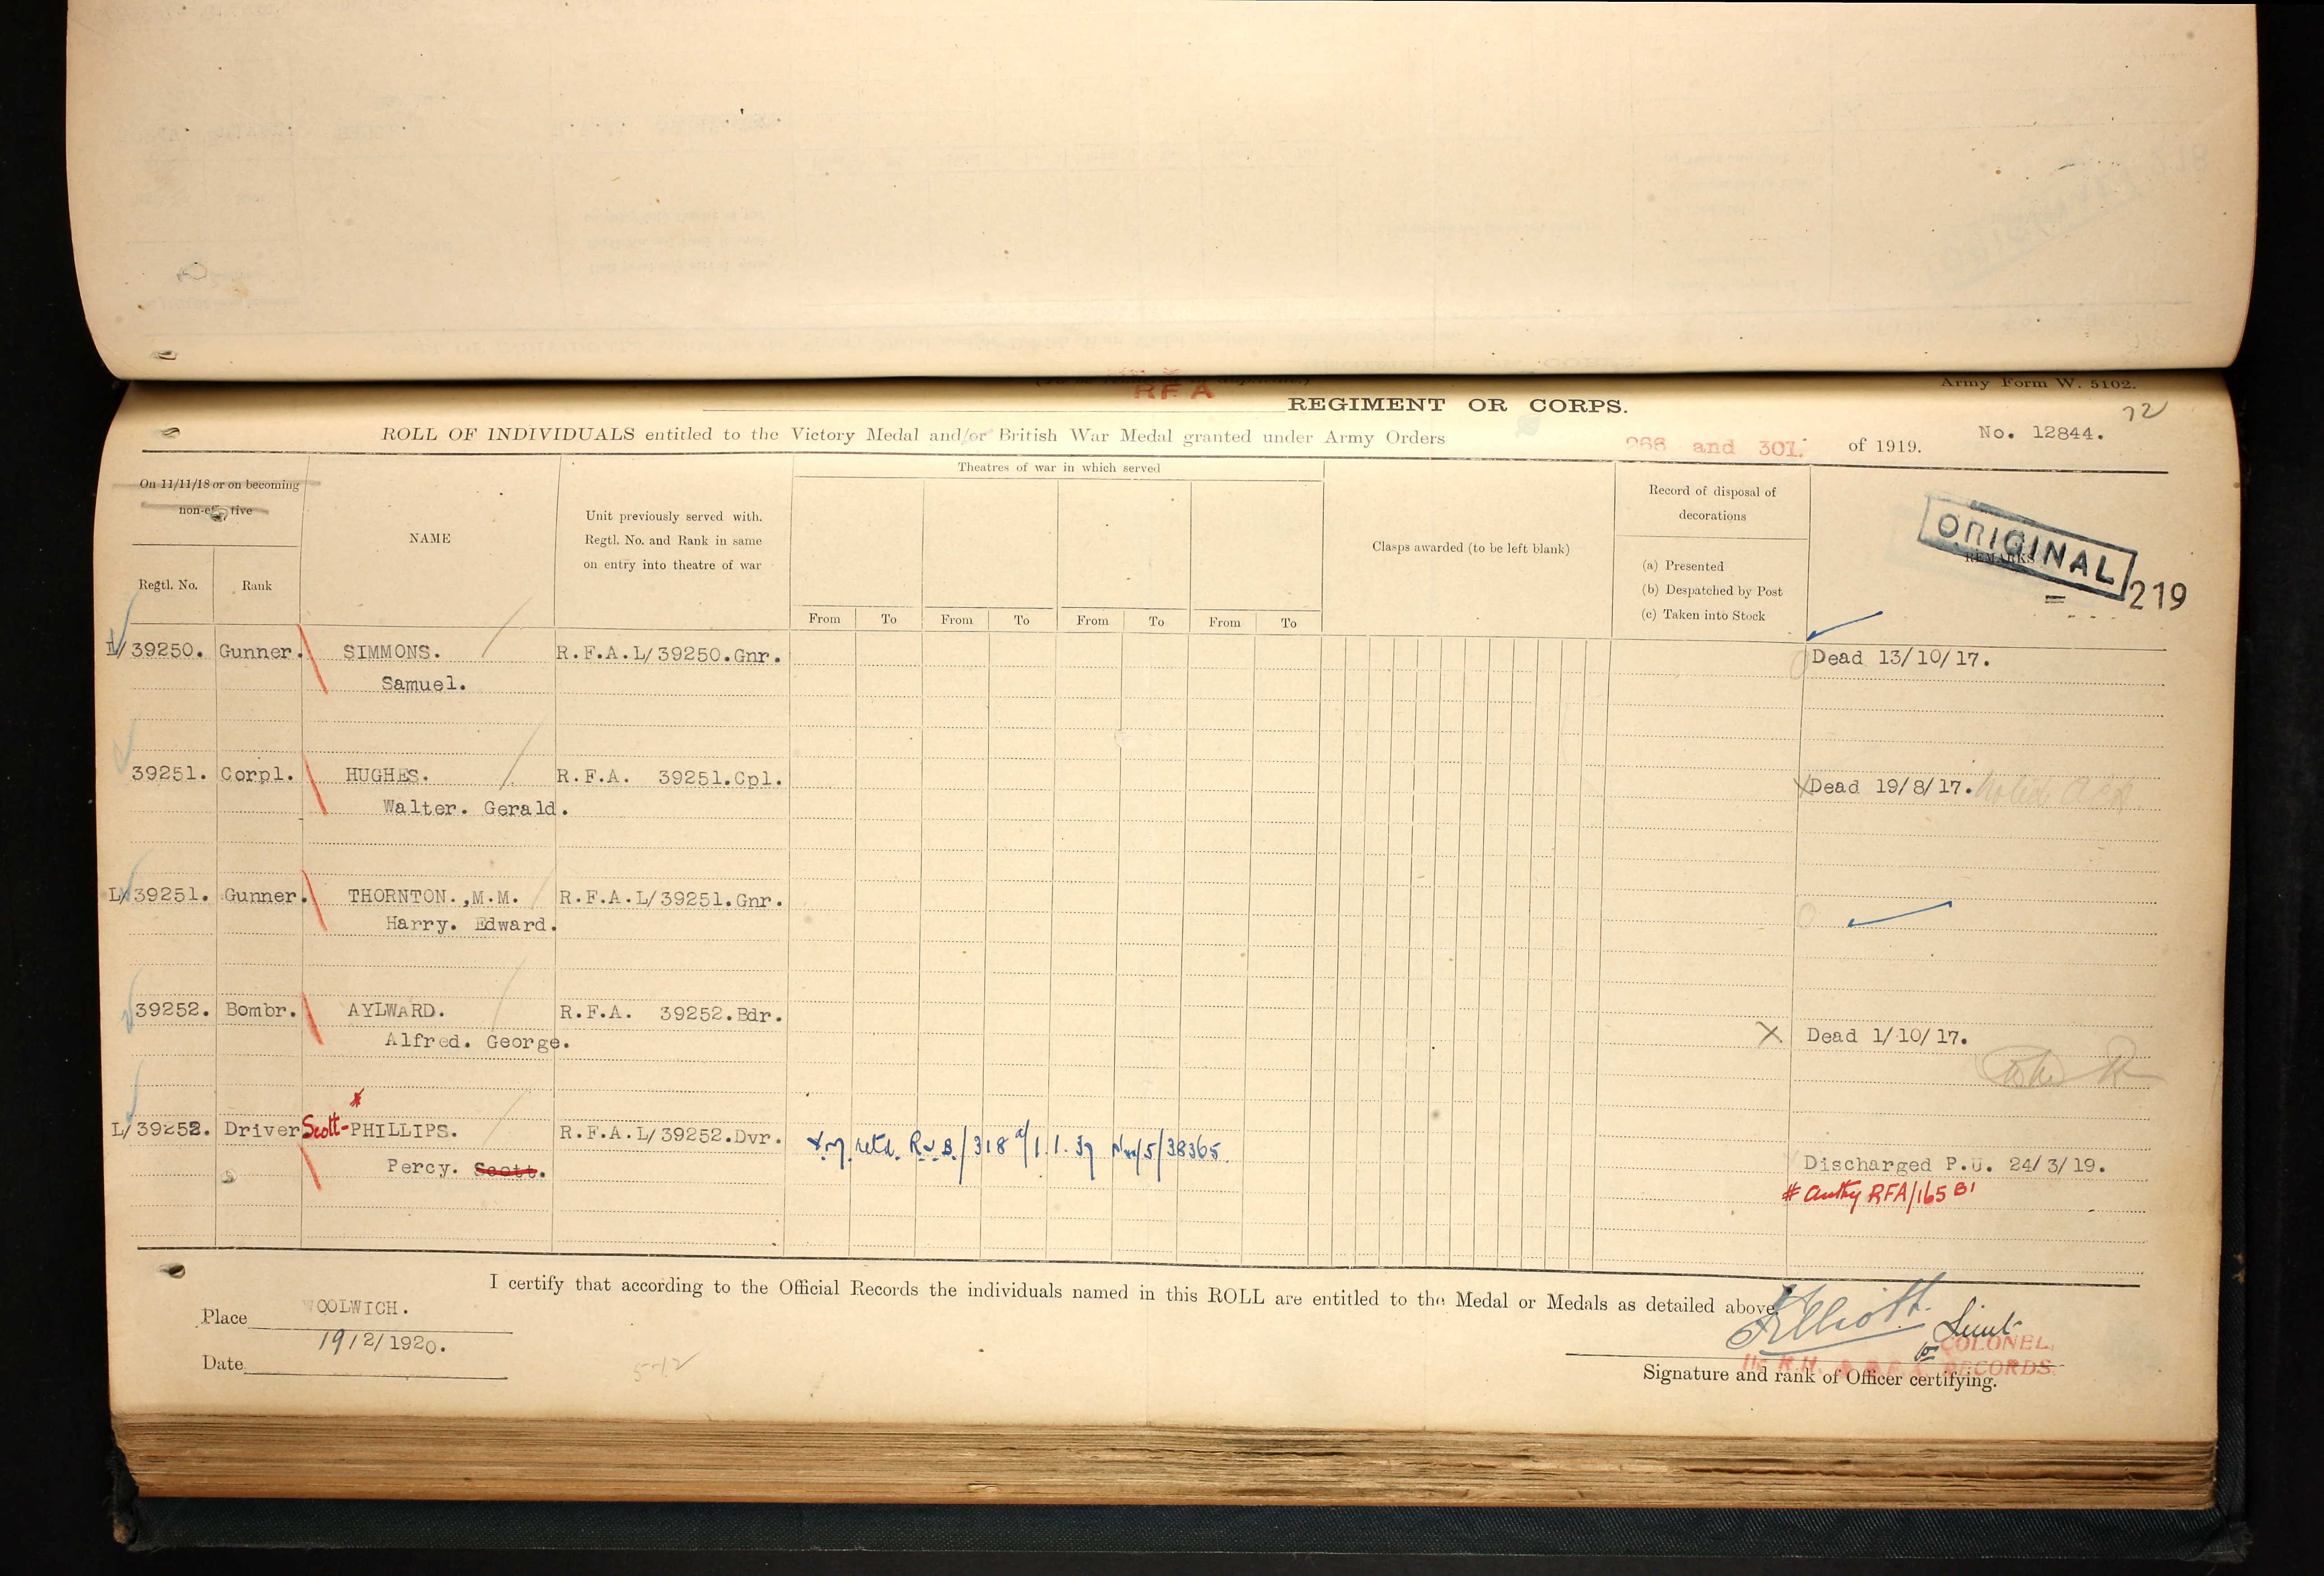 RFA
Army Form W. 5102.
REGIMENT OR CORPS.
72
ROLL OF INDIVIDUALS entitled to the Victory Medal and/or British War Medal granted under Army Orders 266 and 301. of 1919.
No. 12844.
On 11/11/18 or on becoming
non-effective
Regtl. No.
Rank
NAME
Unit previously served with.
Regtl. No. and Rank in same
on entry into theatre of war
Theatres of war in which served
From To From To From To From To
Clasps awarded (to be left blank)
Record of disposal of
decorations
(a) Presented
(b) Despatched by Post
(c) Taken into Stock
REMARKS
ORIGINAL
219
L/39250. Gunner. SIMMONS. R.F.A.L/39250.Gnr. Dead 13/10/17.
Samuel.
39251. Corpl. HUGHES. R.F.A. 39251.Cpl. Dead 19/8/17.
Walter. Gerald.
L/39251. Gunner. THORNTON.,M.M. R.F.A.L/39251.Gnr.
Harry. Edward.
39252. Bombr. AYLWARD. R.F.A. 39252.Bdr. Dead 1/10/17.
Alfred. George.
L/39252. Driver Scott-PHILLIPS. R.F.A.L/39252.Dvr. retd. R.V.B./318 1.1.37 /5/38365.
Percy. Scott. Discharged P.U. 24/3/19.
# Authy RFA/165 B1
I certify that according to the Official Records the individuals named in this ROLL are entitled to the Medal or Medals as detailed above.
Place WOOLWICH.
19/2/1920.
Date
Elliott. Lieut
for COLONEL,
I/c R.H. & R.F.A. RECORDS.
Signature and rank of Officer certifying.